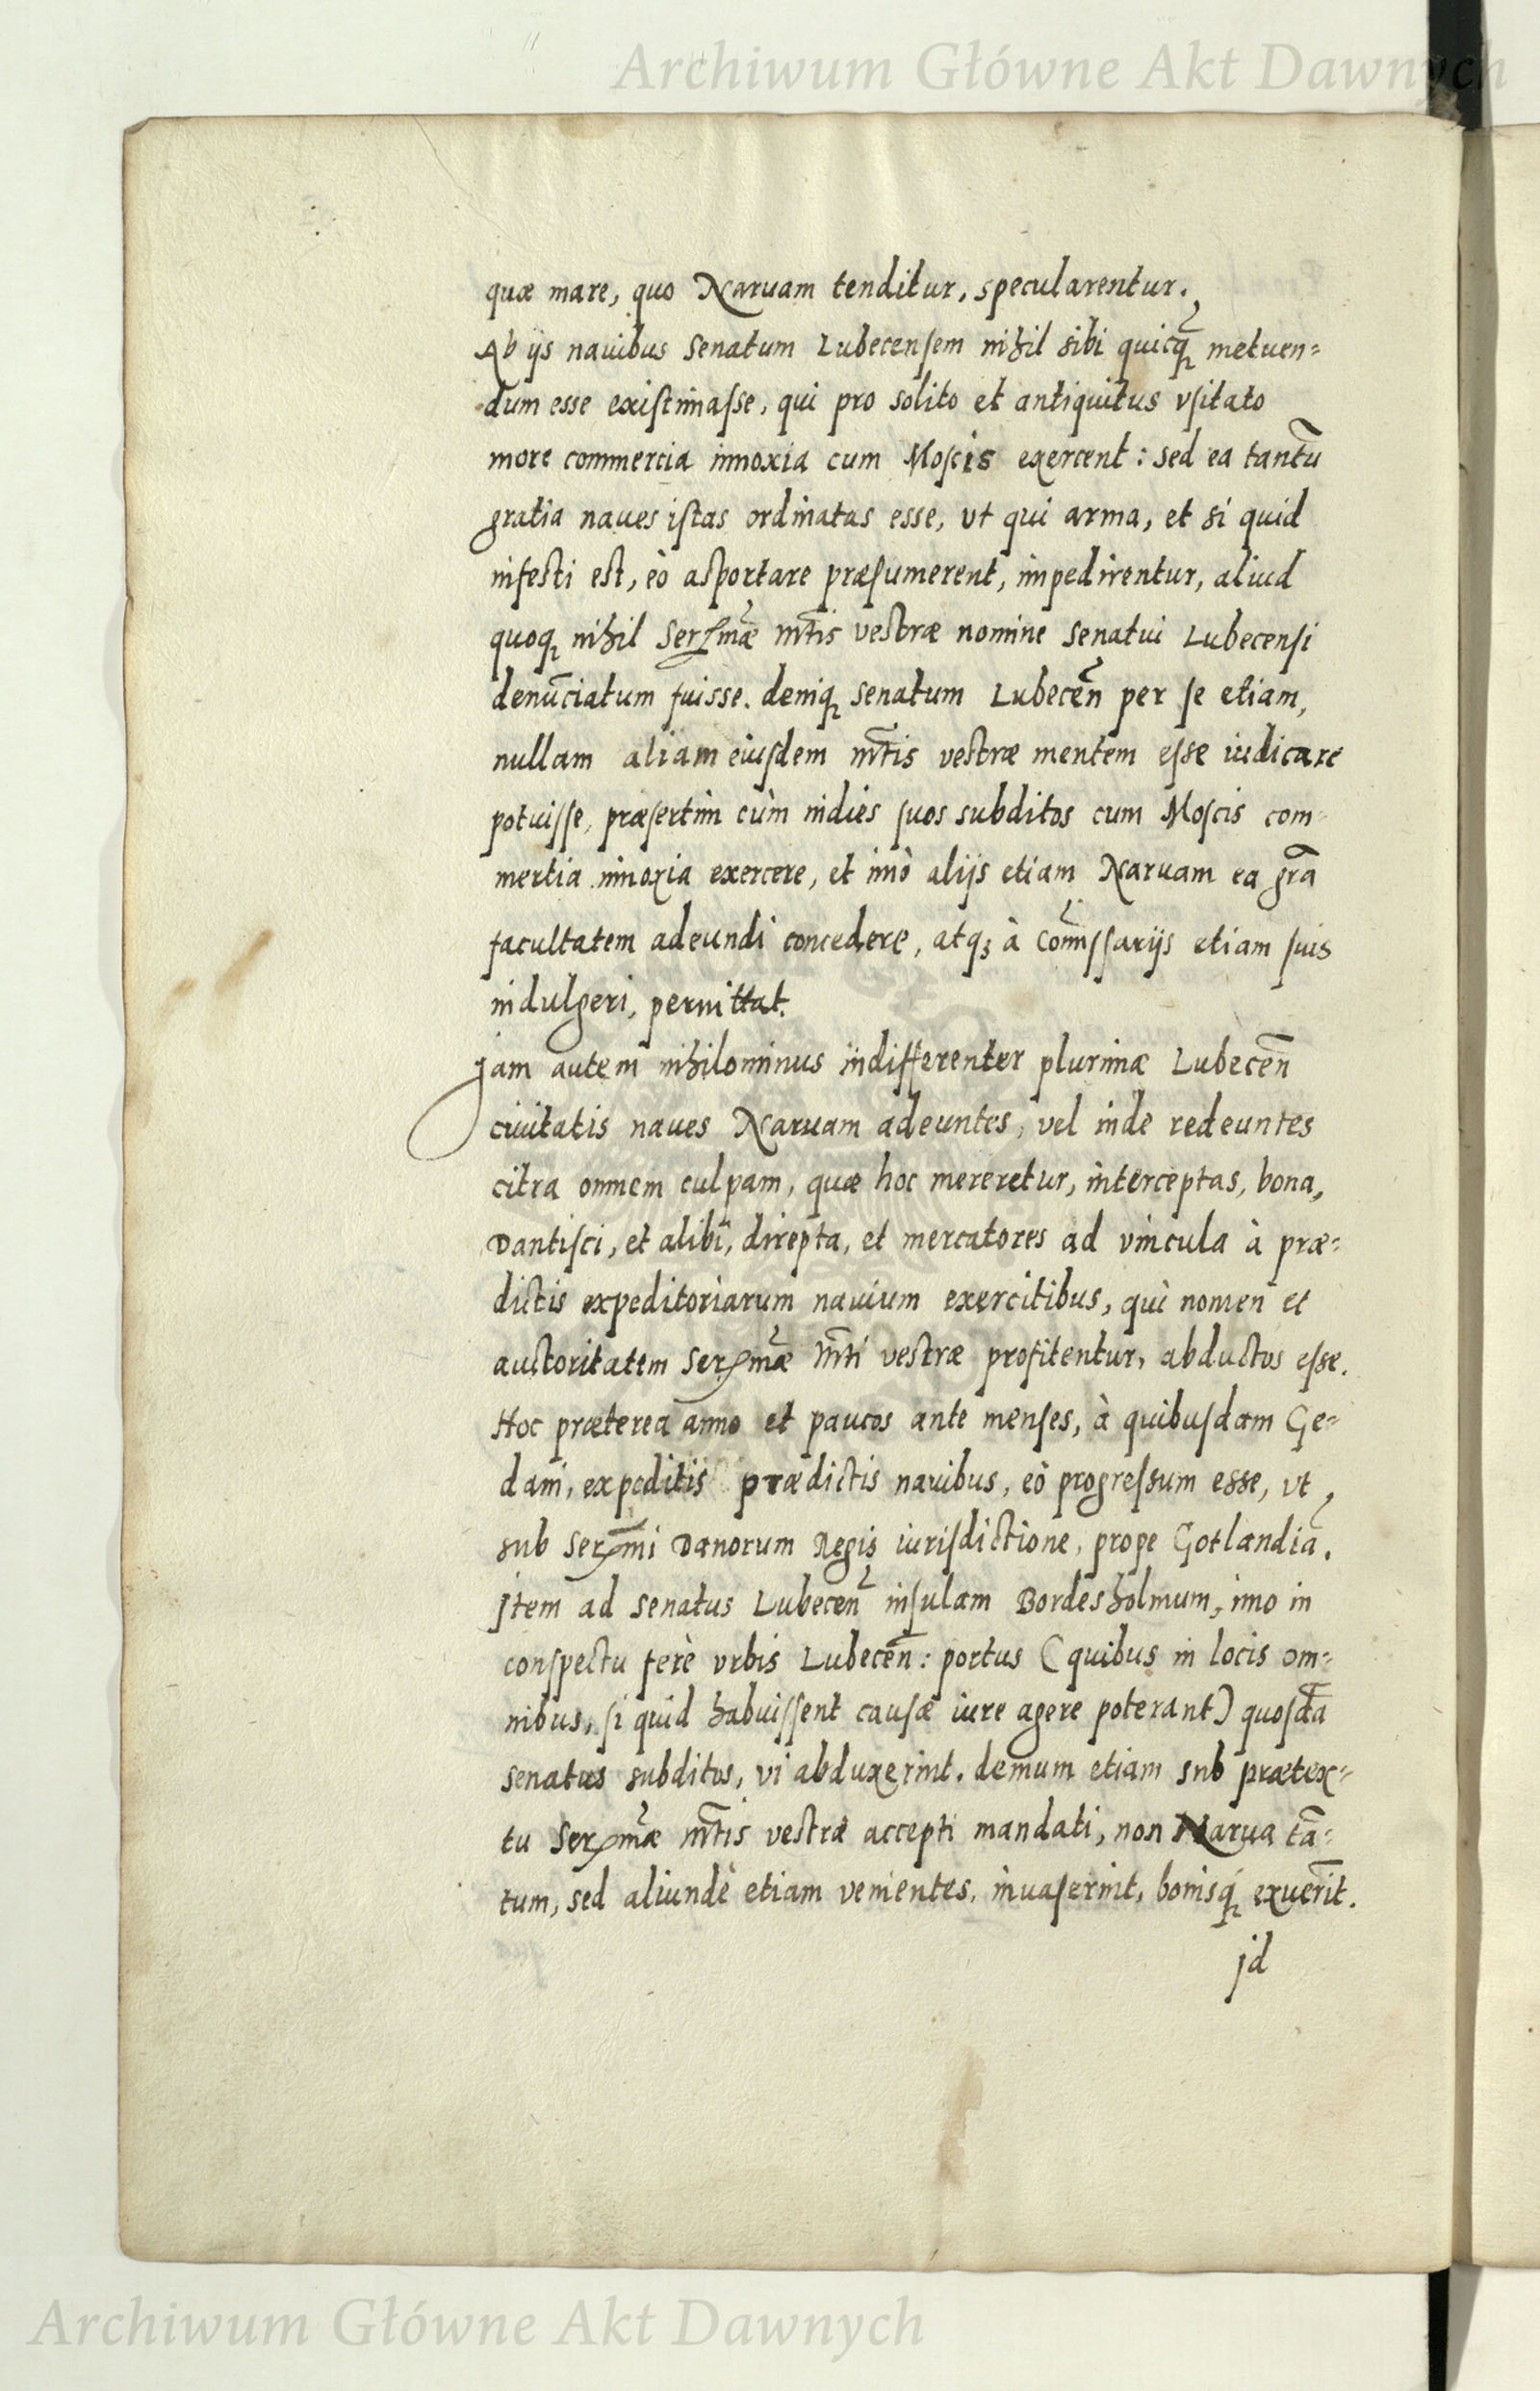 Archiwum Główne Akt Dawnych
quæ mare, quo Naruam tenditur, specularentur.
Ab ijs nauibus Senatum Lubecensem nihil sibi quicq̃ metuen=
dum esse existimasse, qui pro solito et antiquitus vsitato
more commercia innoxia cum Moscis exercent: sed ea tantũ
gratia naues istas ordinatas esse, vt qui arma, et si quid
infesti est, eò asportare præsumerent, impedirentur, aliud
quoq; nihil Serꝫmæ mtis vestræ nomine Senatui Lubecensi
denũciatum fuisse. deniq; senatum Lubeceñ per se etiam,
nullam aliam eiusdem mtis vestræ mentem esse iudicare
potuisse, præsertim cùm indies suos subditos cum Moscis com-
mertia innoxia exercere, et imò alijs etiam Naruam ea grã
facultatem adeundi concedere, atq; à Com̃issarijs etiam suis
indulgeri, permittat.
Jam autem nihilominus indifferenter plurimæ Lubeceñ
ciuitatis naues Naruam adeuntes, vel inde redeuntes
citra omnem culpam, quæ hoc mereretur, interceptas, bona,
Dantisci, et alibi, direpta, et mercatores ad vincula à præ=
dictis expeditoriarum nauium exercitibus, qui nomen et
auctoritatem Serꝫmæ Mti vestræ profitentur, abductos esse.
Hoc præterea anno et paucos ante menses, à quibusdam Ge=
dani, expeditis prædictis nauibus, eò progressum esse, vt
sub Serꝫmi Danorum Regis iurisdictione, prope Gotlandiã.
Jtem ad Senatus Lubeceñ insulam Bordesholmum, imo in
conspectu ferè vrbis Lubeceñ: portus (quibus in locis om=
nibus, si quid habuissent causæ iure agere poterant) quosdã
senatus subditos, vi abduxerint. demum etiam sub prætex=
tu Serꝫmæ Mtis vestræ accepti mandati, non Narua tã=
tum, sed aliundè etiam venientes, inuaserint, bonisq́; exuerĩt.
jd
Archiwum Główne Akt Dawnych